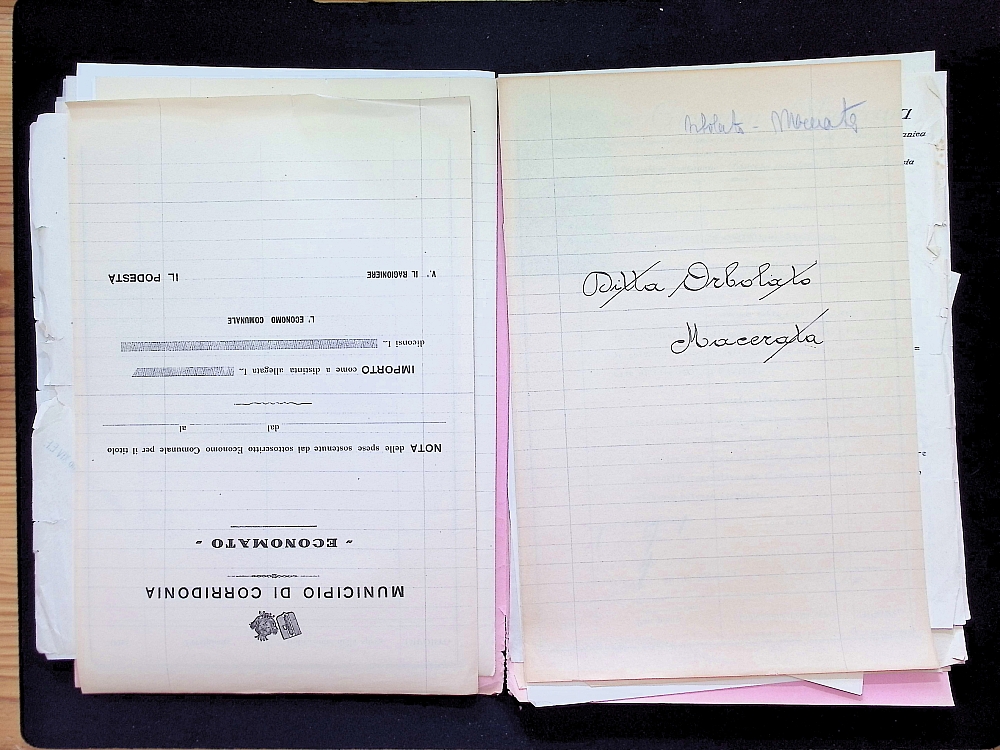 MUNICIPIO DI CORRIDONIA
- ECONOMATO -
NOTA delle spese sostenute dal sottoscritto Economo Comunale per il titolo
dal al
IMPORTO come a distinta allegata L.
diconsi L.
L' ECONOMO COMUNALE
V.° IL RAGIONIERE IL PODESTÀ
Orbolato - Macerata
Ditta Orbolato
Macerata